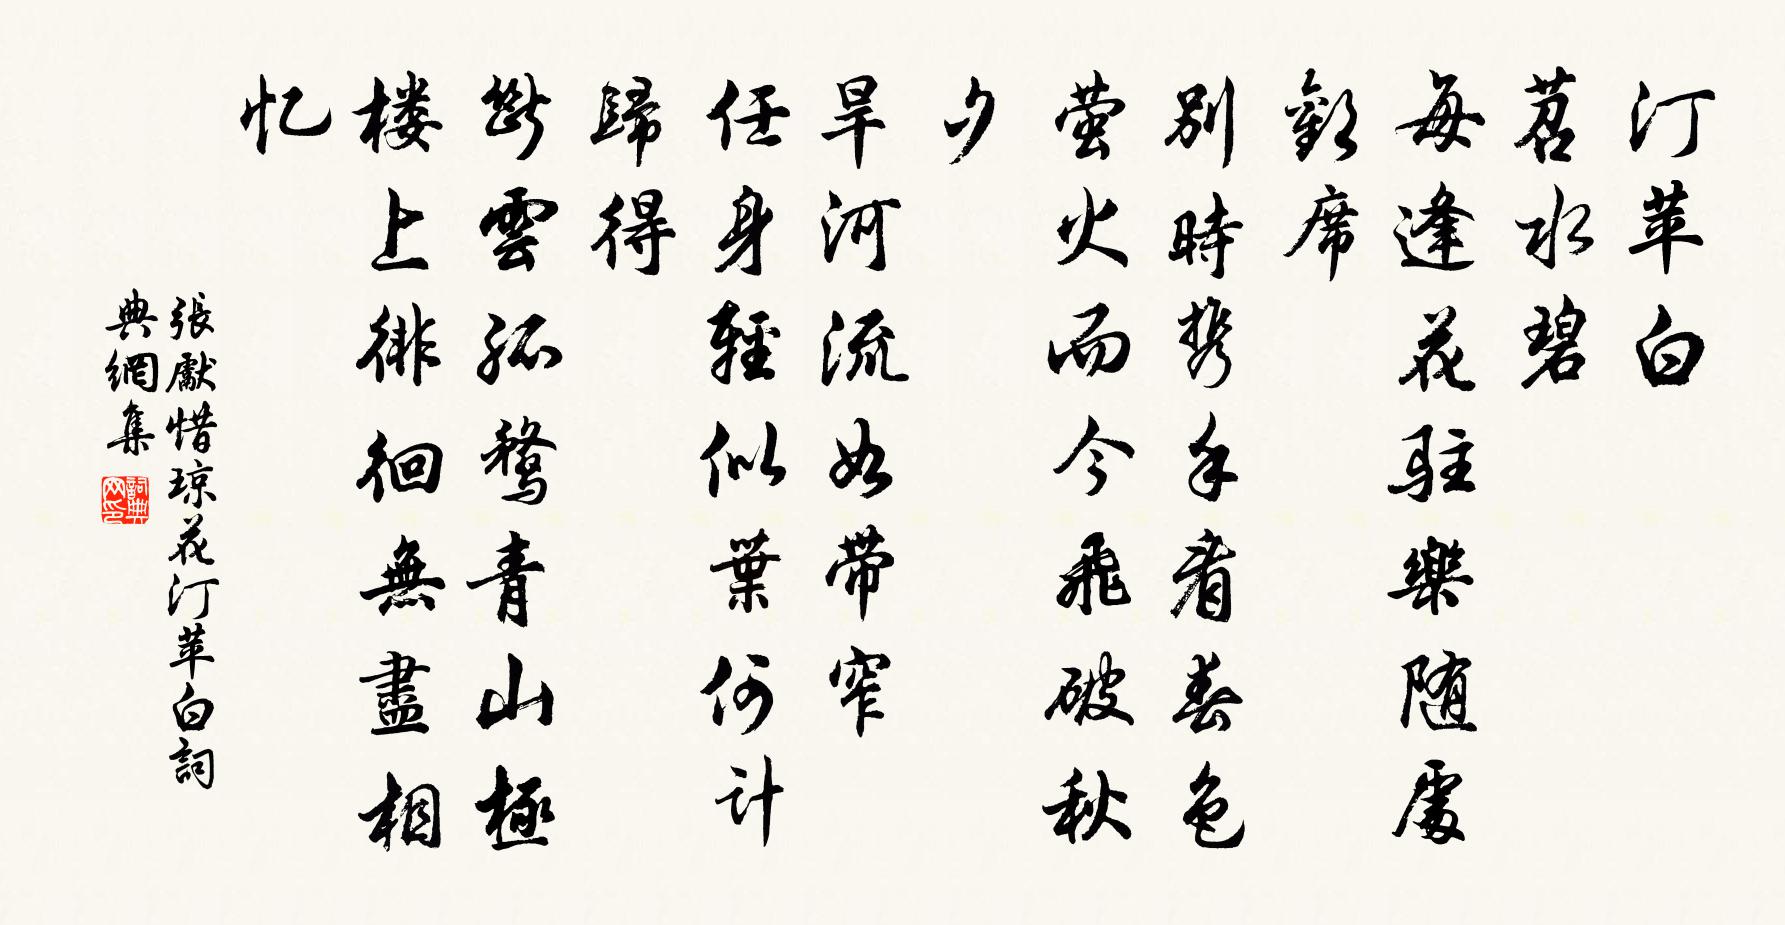 汀苹白
苕水碧
每逢花駐樂随處
歡席
別時携手看春色
萤火而今飛破秋
夕
旱河流如带窄
任身輕似葉何计
歸得
断雲孤鹜青山極
楼上徘徊無盡相
忆
張獻惜琼花汀苹白詞
典網集
詞典网印